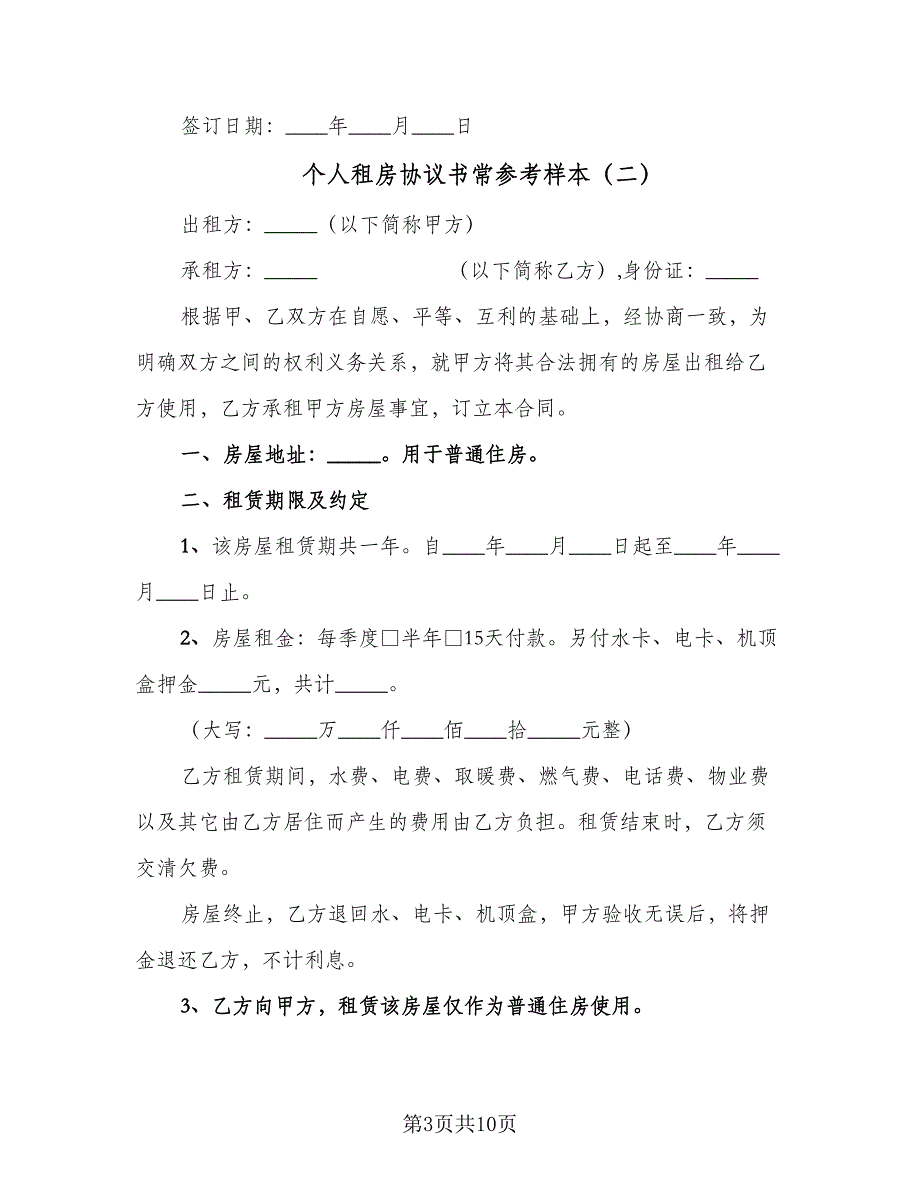 签订日期：____年____月____日
个人租房协议书常参考样本（二）
出租方：_____（以下简称甲方）
承租方：_____ （以下简称乙方）,身份证：_____
根据甲、乙双方在自愿、平等、互利的基础上，经协商一致，为
明确双方之间的权利义务关系，就甲方将其合法拥有的房屋出租给乙
方使用，乙方承租甲方房屋事宜，订立本合同。
一、房屋地址：_____。用于普通住房。
二、租赁期限及约定
1、该房屋租赁期共一年。自____年____月____日起至____年____
月____日止。
2、房屋租金：每季度□半年□15天付款。另付水卡、电卡、机顶
盒押金_____元，共计_____。
（大写：_____万____仟____佰____拾_____元整）
乙方租赁期间，水费、电费、取暖费、燃气费、电话费、物业费
以及其它由乙方居住而产生的费用由乙方负担。租赁结束时，乙方须
交清欠费。
房屋终止，乙方退回水、电卡、机顶盒，甲方验收无误后，将押
金退还乙方，不计利息。
3、乙方向甲方，租赁该房屋仅作为普通住房使用。
第3页共10页